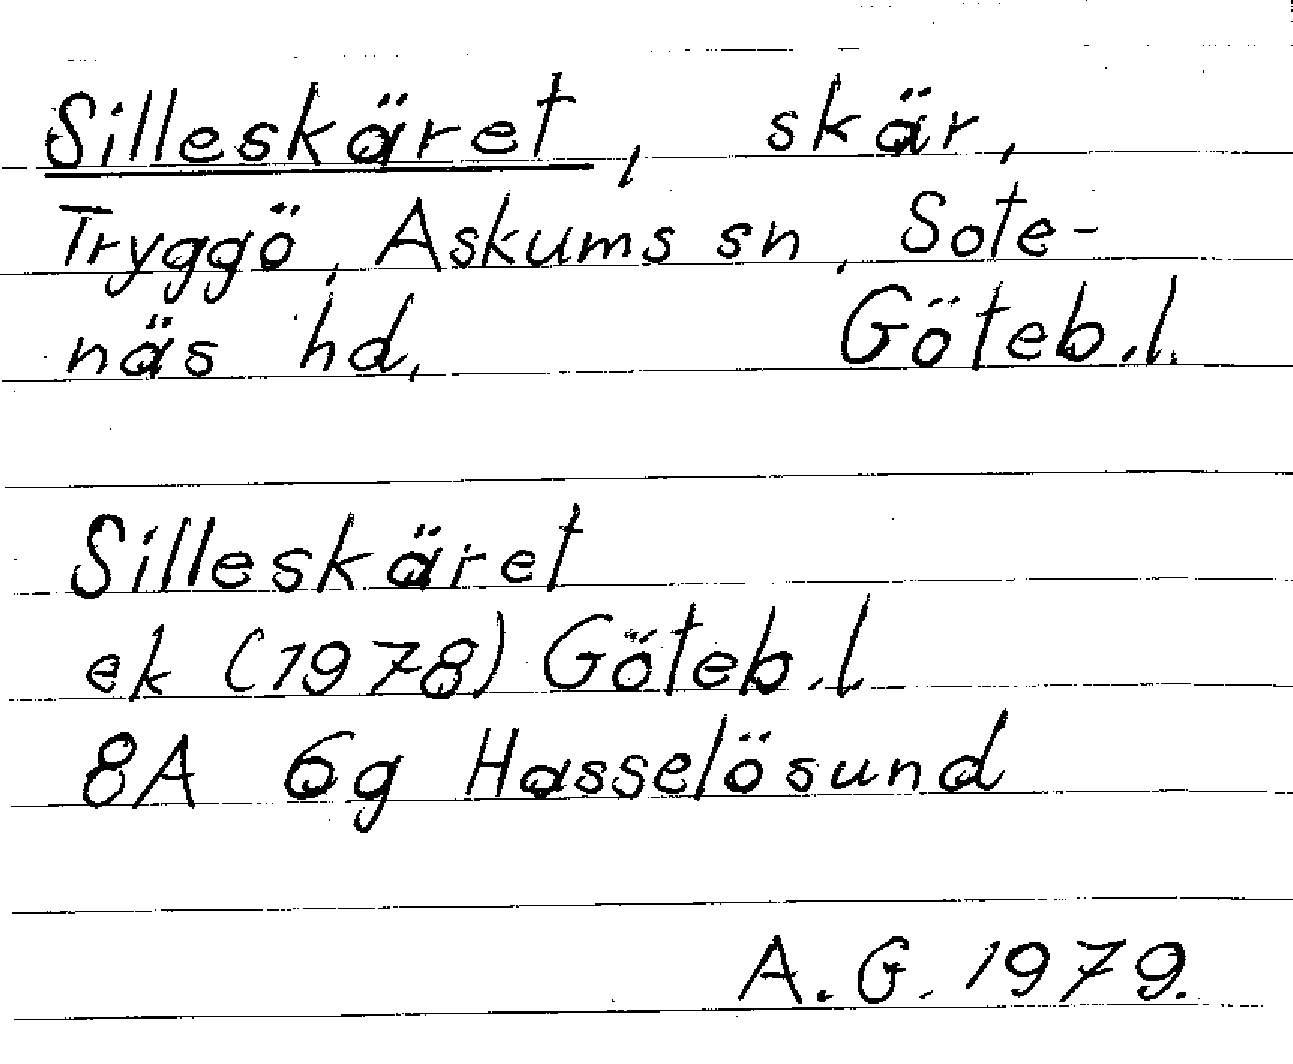 Silleskäret, skär,
Tryggö, Askums sn, Sote-
näs hd, Göteb.l.
Silleskäret
ek (1978) Göteb.l
8A 6g Hasselösund
A. G. 1979.